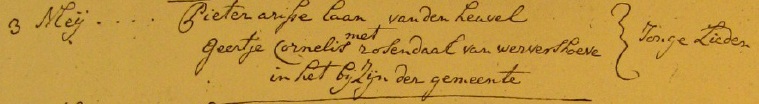 3 Meÿ.... Pieter arisse laan van den heuvel
met
Geertje Cornelis rosendaal van wervershoeve } Jonge Lieden
in het bijZijn der gemeente